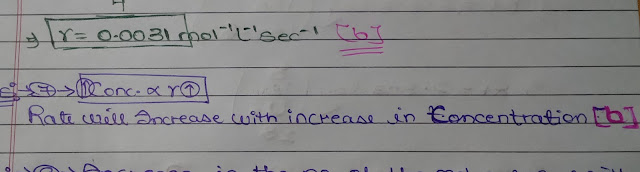 ⇒ r = 0.0031 mol⁻¹L⁻¹sec⁻¹ [b]
→ ⑦ → ↑Conc. ∝ r↑
Rate will Increase with increase in Concentration [b]